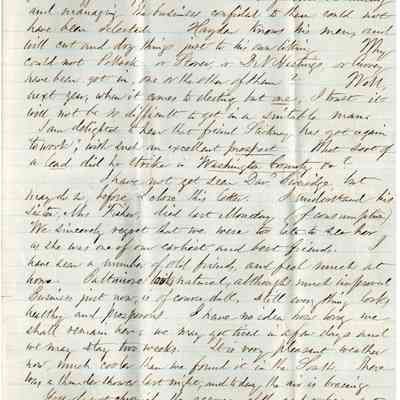 and managing the business confided to them could not
have been selected. Hayden knows his man, and
will cut and dry things just to his own liking. Why
could not Pollock or Flower, or D. N. Hastings, or
have been got in, one or the other of them? Well,
next year, when it comes to electing but one, I trust it
will not be so difficult to get in a suitable man.
I am delighted to hear that friend has got again
to work, with such an excellent prospect. What sort of
a lead did he strike in Washington County, or?
I have not yet seen Davd but
may do so before I close this letter. I understand his
Sister, Mrs Fisher, died last Monday (of consumption)
We sincerely regret that we were too late to see her,
as she was one of our earliest and best friends. I
have seen a number of old friends, and feel much at
home. Baltimore looks natural, although much improved
Business just now, is of course dull, still every thing looks
healthy and prosperous. I have no idea how long we
shall remain here; we may get tired in a few days and
we may stay two weeks. It is very pleasant weather
now, much cooler than we found it in the South. There
was a thunder shower last night, and to day the air is bracing
You do not